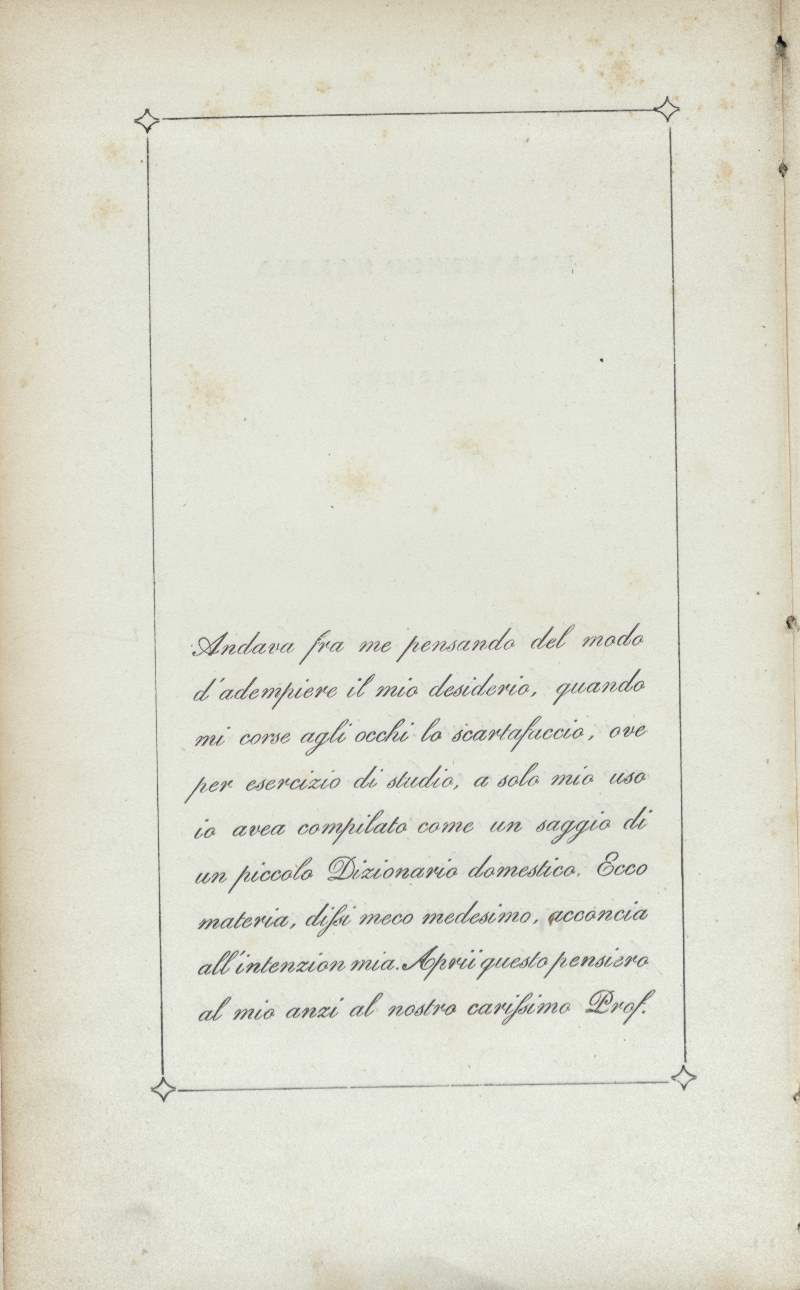 Andava fra me pensando del modo
d'adempiere il mio desiderio, quando
mi corse agli occhi lo scartafaccio, ove
per esercizio di studio, a solo mio uso
io avea compilato come un saggio di
un piccolo Dizionario domestico. Ecco
materia, diſsi meco medesimo, acconcia
all'intenzion mia. Aprii questo pensiero
al mio anzi al nostro cariſsimo Prof.